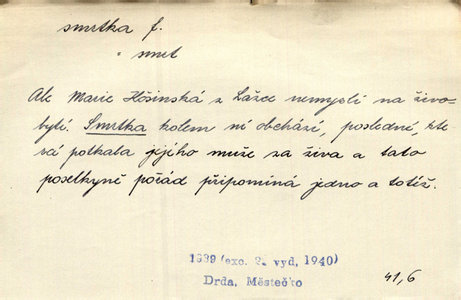 smrtka f.
= smrt
Ale Marie Hősinská z Lážce nemyslí na živo-
bytí. Smrtka kolem ní obchází, posledné, kte-
rá potkala jejího muže za živa a tato
poselkyně pořád připomíná jedno a totéž.
1939 (exc. 2. vyd, 1940)
Drda, Městečko
41,6